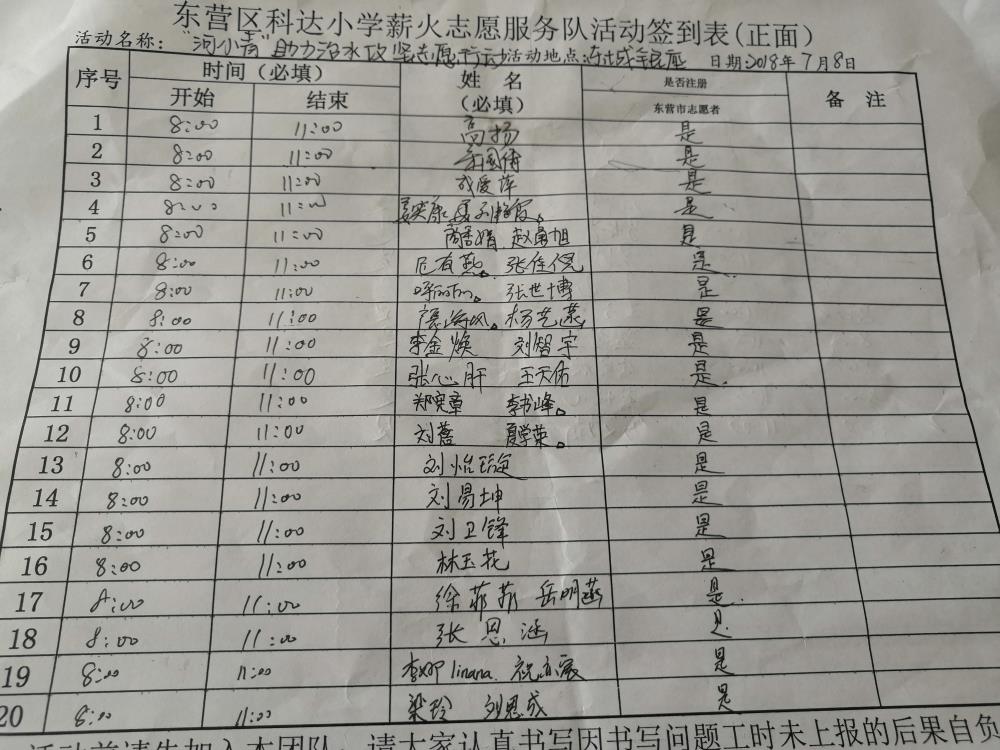 东营区科达小学薪火志愿服务队活动签到表(正面)
活动名称："河小青"助力治水攻坚志愿行动 活动地点: 日期2018年7月8日
序号 时间（必填） 姓名（必填） 是否注册东营市志愿者 备注
开始 结束
1 8:00 11:00 高扬 是
2 8:00 11:00 是
3 8:00 11:00 成爱萍 是
4 8:00 11:00 是
5 8:00 11:00 赵勇旭 是
6 8:00 11:00 张佳倪 是
7 8:00 11:00 张世博 是
8 8:00 11:00 杨艺菉 是
9 8:00 11:00 李金焕 刘智宇 是
10 8:00 11:00 张心肝 王天佑 是
11 8:00 11:00 郑宪章 李书峰。 是
12 8:00 11:00 刘蕾 夏学荣。 是
13 8:00 11:00 刘怡琁 是
14 8:00 11:00 刘易坤 是
15 8:00 11:00 刘卫锋 是
16 8:00 11:00 林玉花 是
17 8:00 11:00 徐菲菲 岳明燕 是
18 8:00 11:00 张恩涵 是
19 8:00 11:00 李娜 linana 祝亦宸 是
20 8:00 11:00 梁玲 刘恩成 是
活动前请先加入本团队，请大家认真书写因书写问题工时未上报的后果自负